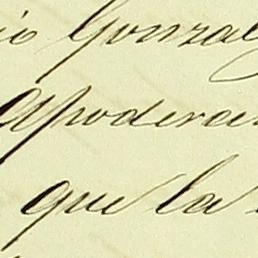 io Gonzal
Apodera
que la